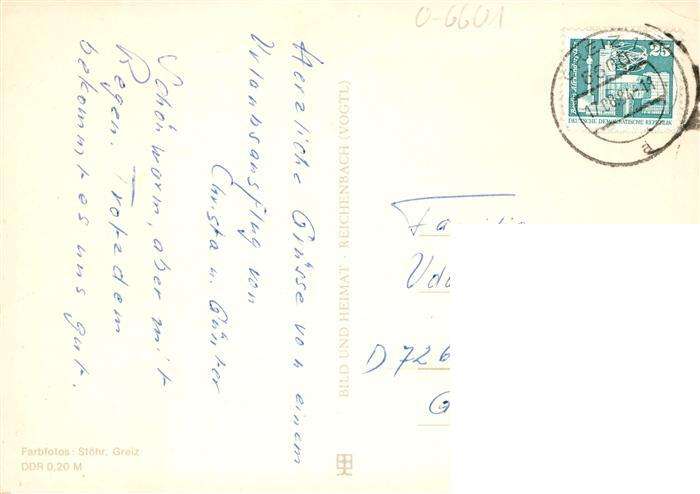 0-6601
Herzliche Grüsse von einem
Urlaubsausflug von
Christa u. Günter
Schön warm, aber mit
Regen. Trotzdem
bekommt es uns gut.
BILD UND HEIMAT · REICHENBACH (VOGTL)
25
DEUTSCHE DEMOKRATISCHE REPUBLIK
GREIZ 1
6600
Familie
D 726
Farbfotos: Stöhr, Greiz
DDR 0,20 M